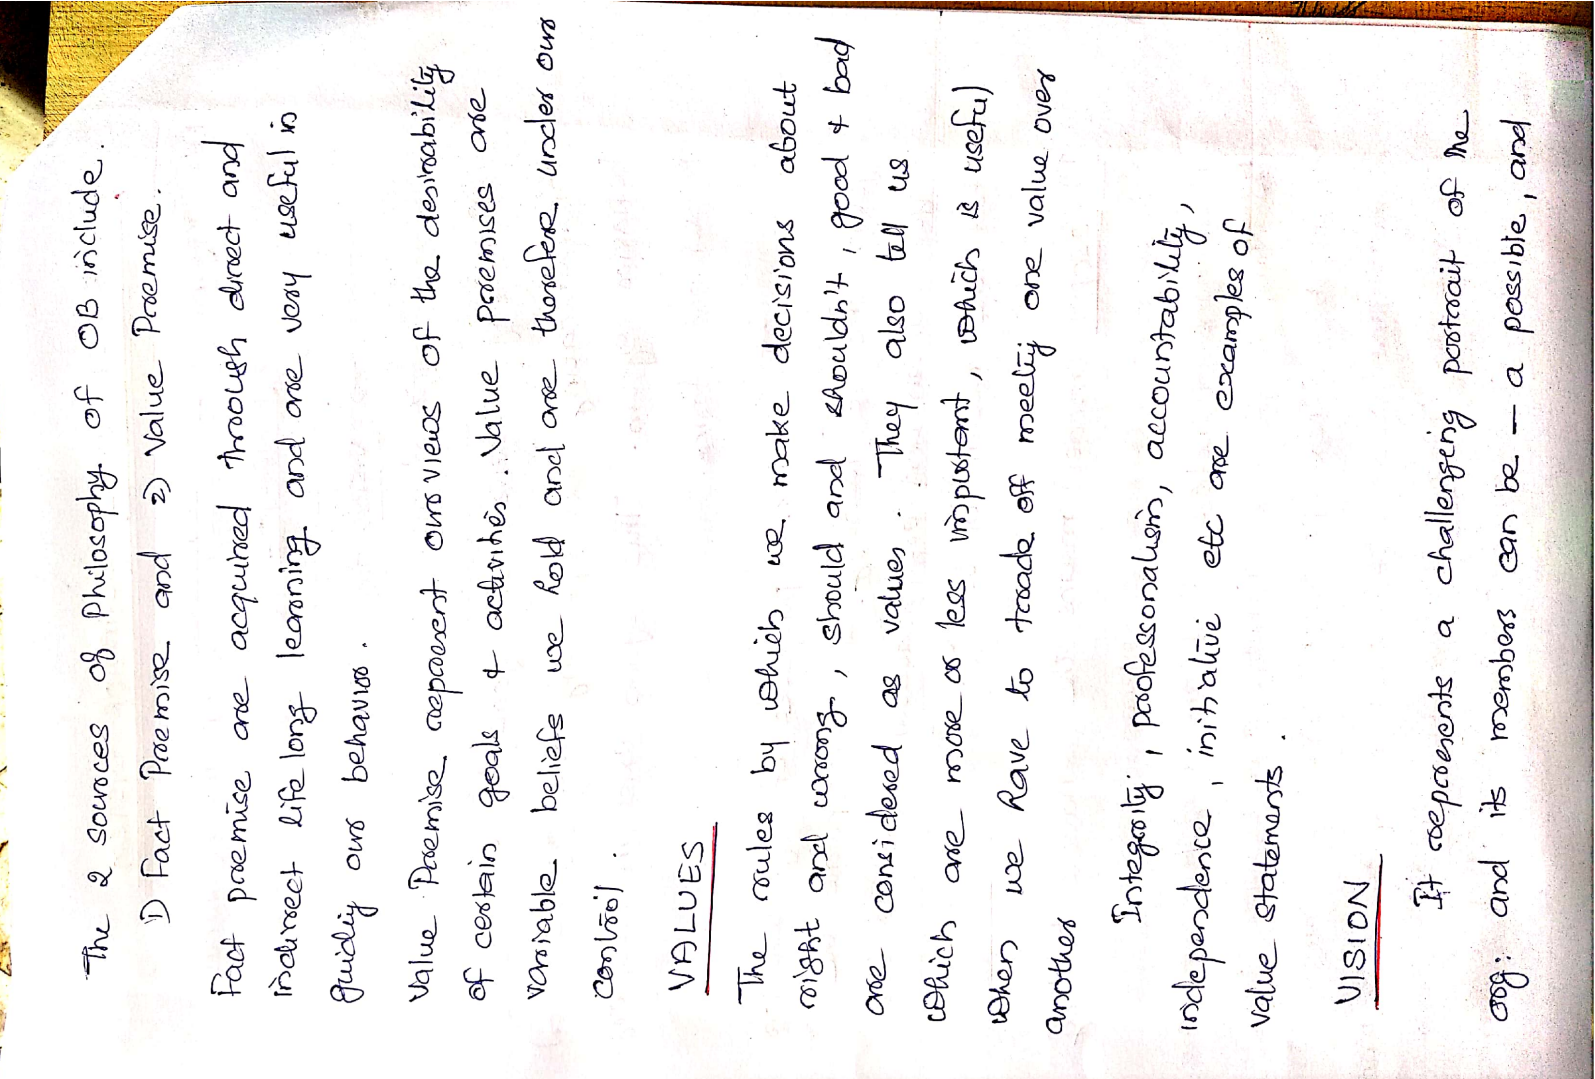 The 2 sources of Philosophy of OB include.
1) Fact Premise and 2) Value Premise.
Fact premise are acquired through direct and
indirect life long learning and are very useful in
guiding our behavior.
Value Premise represent our views of the desirability
of certain goals + activities. Value premises are
variable beliefs we hold and are therefore under our
control.
VALUES
The rules by which we make decisions about
right and wrong, should and shouldn't, good + bad
are considered as values. They also tell us
which are more or less important, which is useful
when we have to trade off meeting one value over
another
Integrity, professionalism, accountability,
independence, initiative etc are examples of
value statements.
VISION
It represents a challenging portrait of the
org: and its members can be – a possible, and